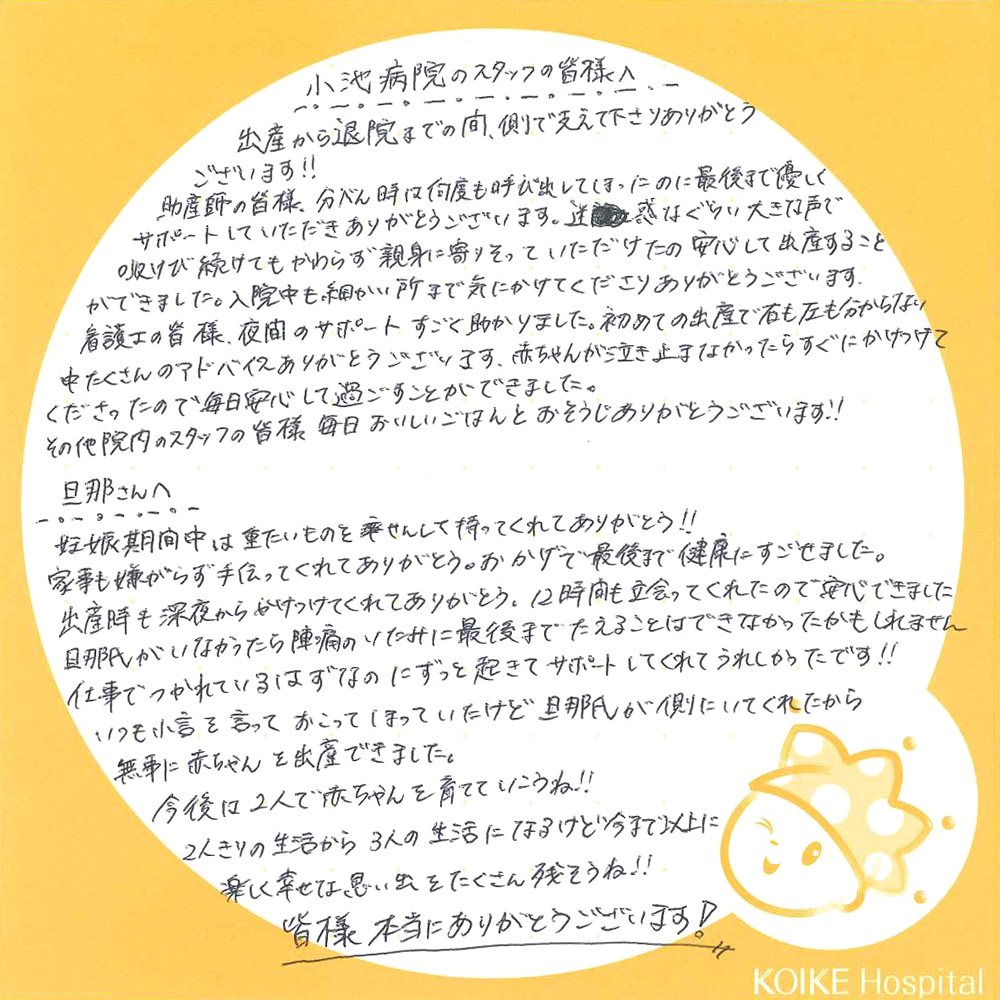 小池病院のスタッフの皆様へ
出産から退院までの間、側で支えて下さりありがとう
ございます!!
助産師の皆様、分べん時は何度も呼び出してしまったのに最後まで優しく
サポートしていただきありがとうございます。迷惑なぐらい大きな声で
叫けび続けてもかわらず親身に寄りそっていただけたの安心して出産すること
ができました。入院中も細かい所まで気にかけてくださりありがとうございます.
看護士の皆様、夜間のサポートすごく助かりました。初めての出産で右も左も分からない
中たくさんのアドバイスありがとうございます、赤ちゃんが泣き止まなかったらすぐにかけつけて
くださったので毎日安心して過ごすことができました。
その他院内のスタッフの皆様 毎日おいしいごはんとおそうじありがとうございます!!
旦那さんへ
妊娠期間中は重たいものを率せんして持ってくれてありがとう!!
家事も嫌がらず手伝ってくれてありがとう。おかげで最後まで健康にすごせました。
出産時も深夜からかけつけてくれてありがとう。12時間も立会ってくれたので安心できました
旦那氏がいなかったら陣痛のいたみに最後までたえることはできなかったかもしれません
仕事でつかれているはずなのにずっと起きてサポートしてくれてうれしかったです!!
いつも小言を言っておこってしまっていたけど旦那氏が側にいてくれたから
無事に赤ちゃんを出産できました。
今後は2人で赤ちゃんを育てていこうね!!
2人きりの生活から3人の生活になるけど今まで以上に
楽しく幸せな思い出をたくさん残そうね!!
皆様 本当にありがとうございます!
KOIKE Hospital